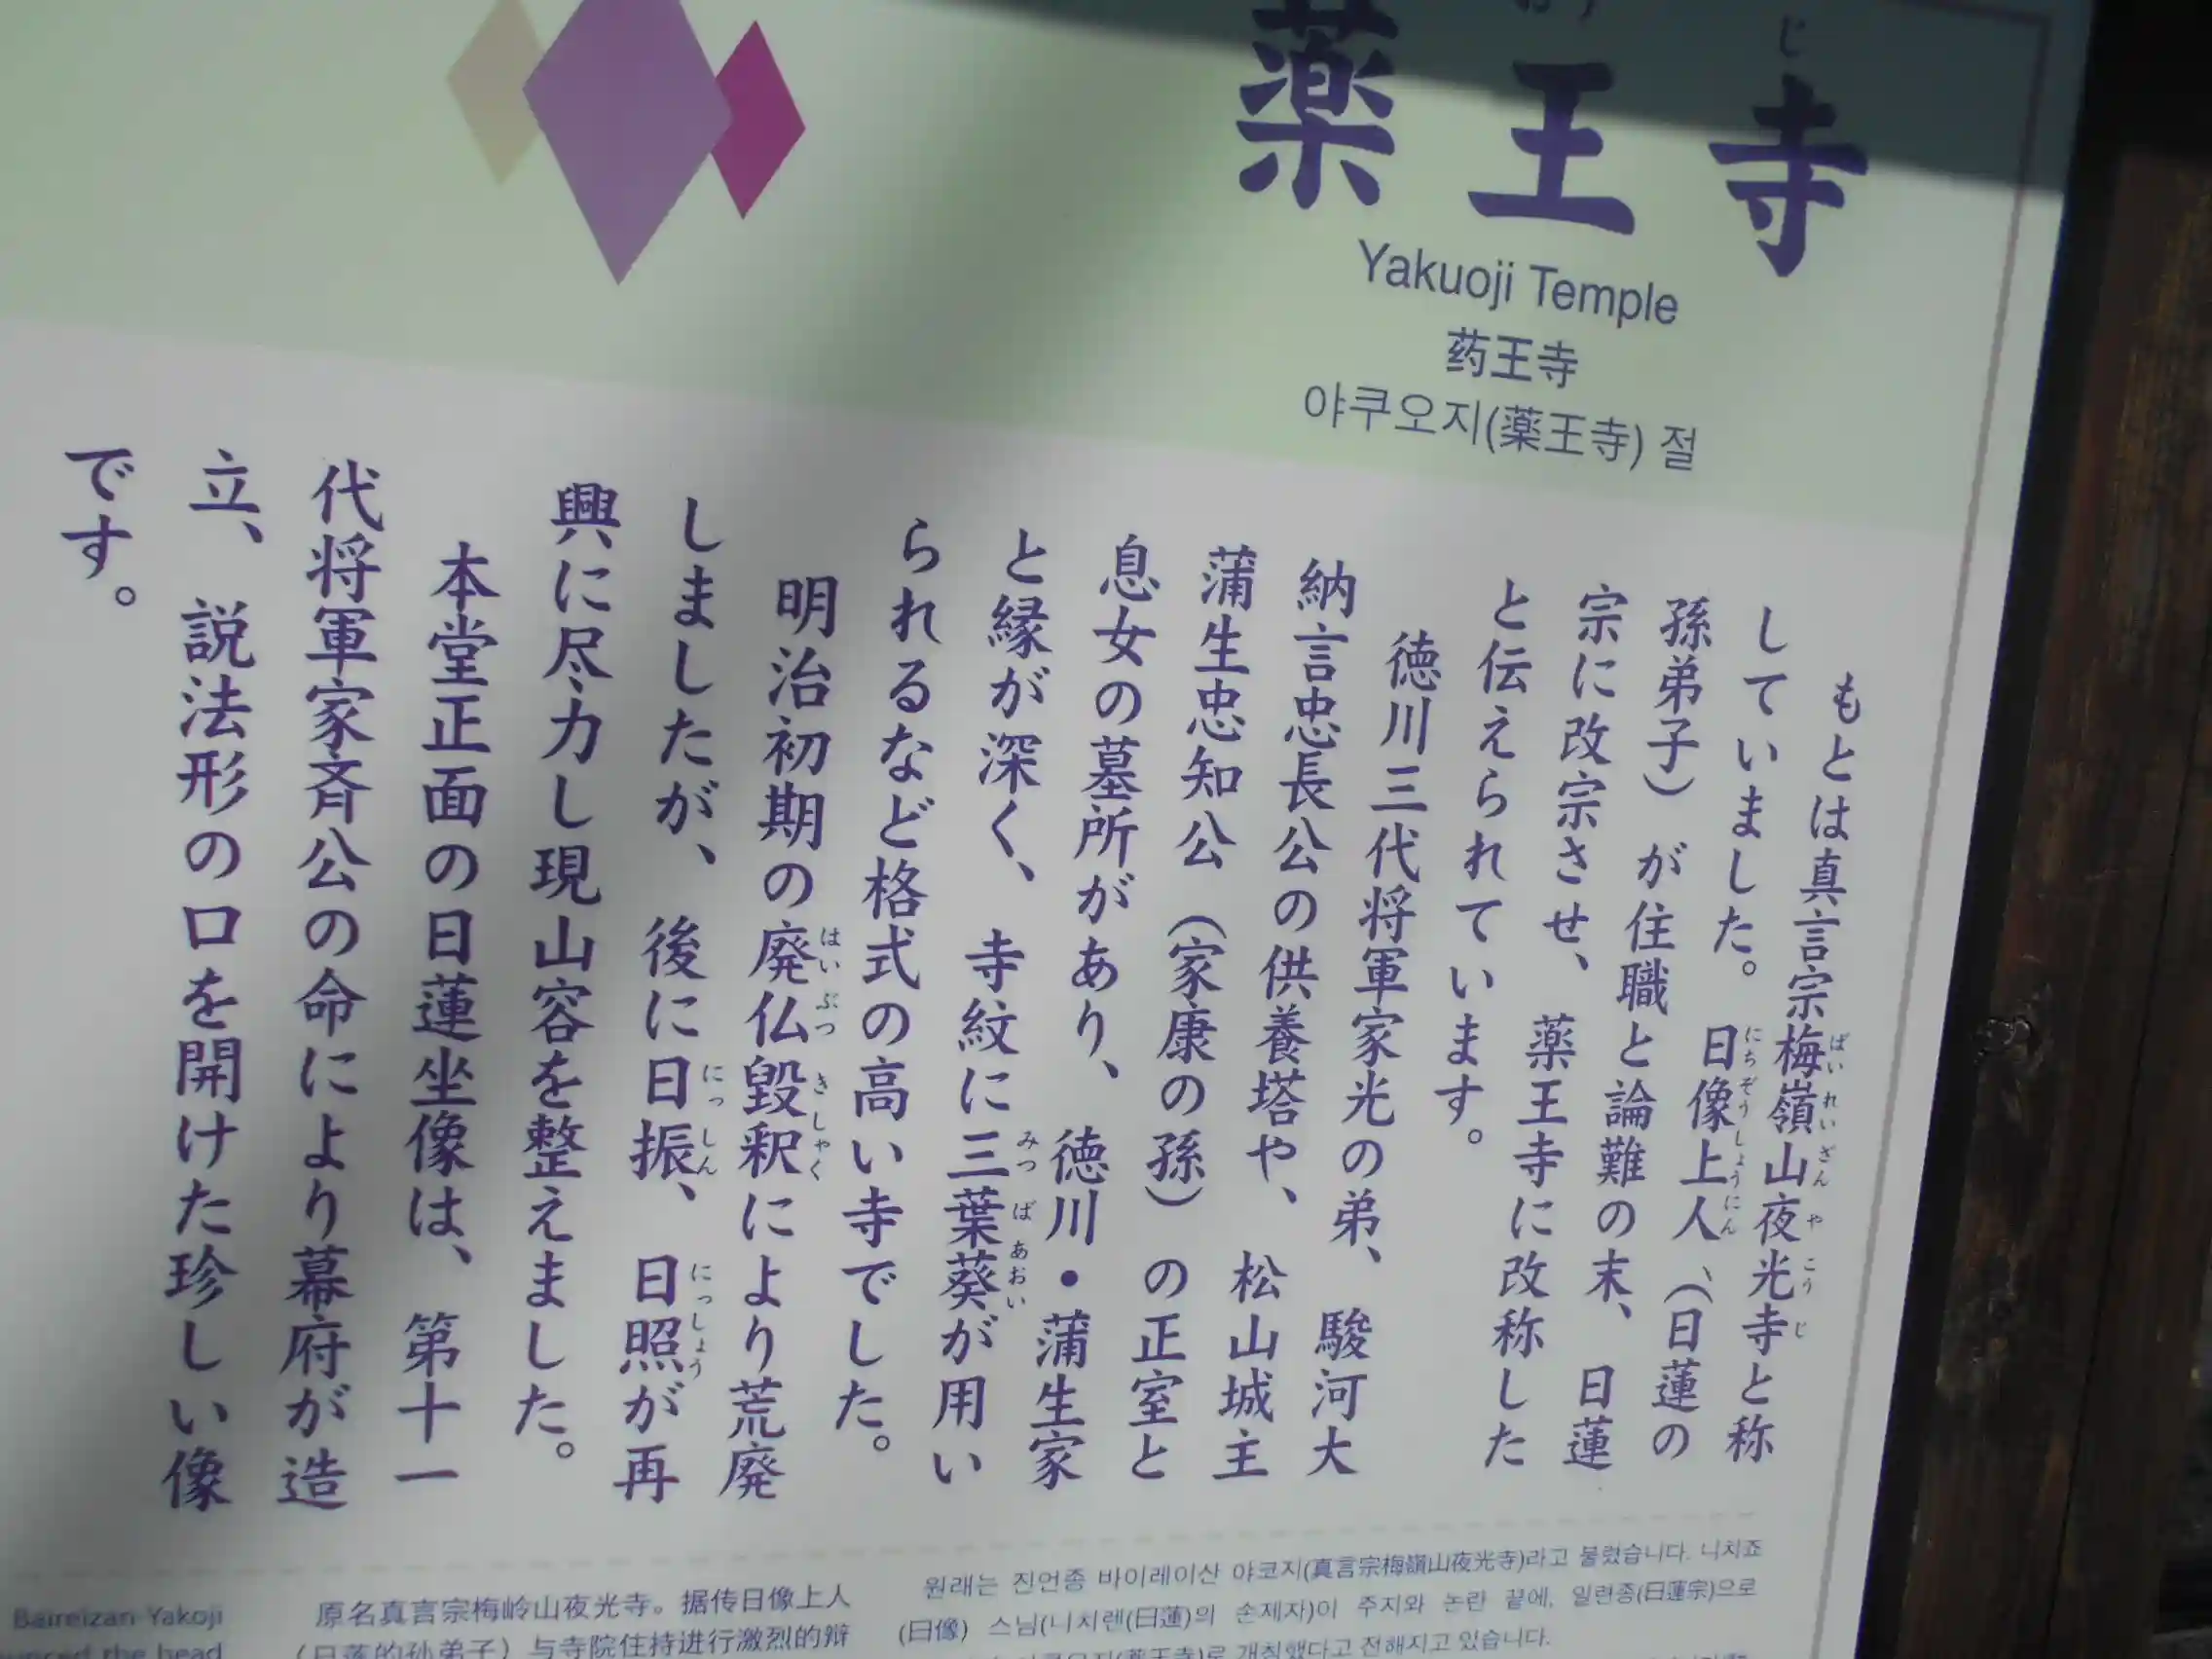 おうじ
薬王寺
Yakuoji Temple
药王寺
야쿠오지(薬王寺) 절
もとは真言宗梅嶺山夜光寺と称
していました。日像上人、(日蓮の
孫弟子)が住職と論難の末、日蓮
宗に改宗させ、薬王寺に改称した
と伝えられています。
徳川三代将軍家光の弟、駿河大
納言忠長公の供養塔や、松山城主
蒲生忠知公(家康の孫)の正室と
息女の墓所があり、徳川・蒲生家
と縁が深く、寺紋に三葉葵が用い
られるなど格式の高い寺でした。
明治初期の廃仏毀釈により荒廃
しましたが、後に日振、日照が再
興に尽力し現山容を整えました。
本堂正面の日蓮坐像は、第十一
代将軍家斉公の命により幕府が造
立、説法形の口を開けた珍しい像
です。
Baireizan Yakoji
the head
原名真言宗梅岭山夜光寺。据传日像上人
(日莲的孙弟子)与寺院住持进行激烈的辩
원래는 진언종 바이레이산 야코지(真言宗梅嶺山夜光寺)라고 불렸습니다. 니치죠
(日像) 스님(니치렌(日蓮)의 손제자)이 주지와 논란 끝에, 일련종(日蓮宗)으로
(薬王寺)로 개칭했다고 전해지고 있습니다.